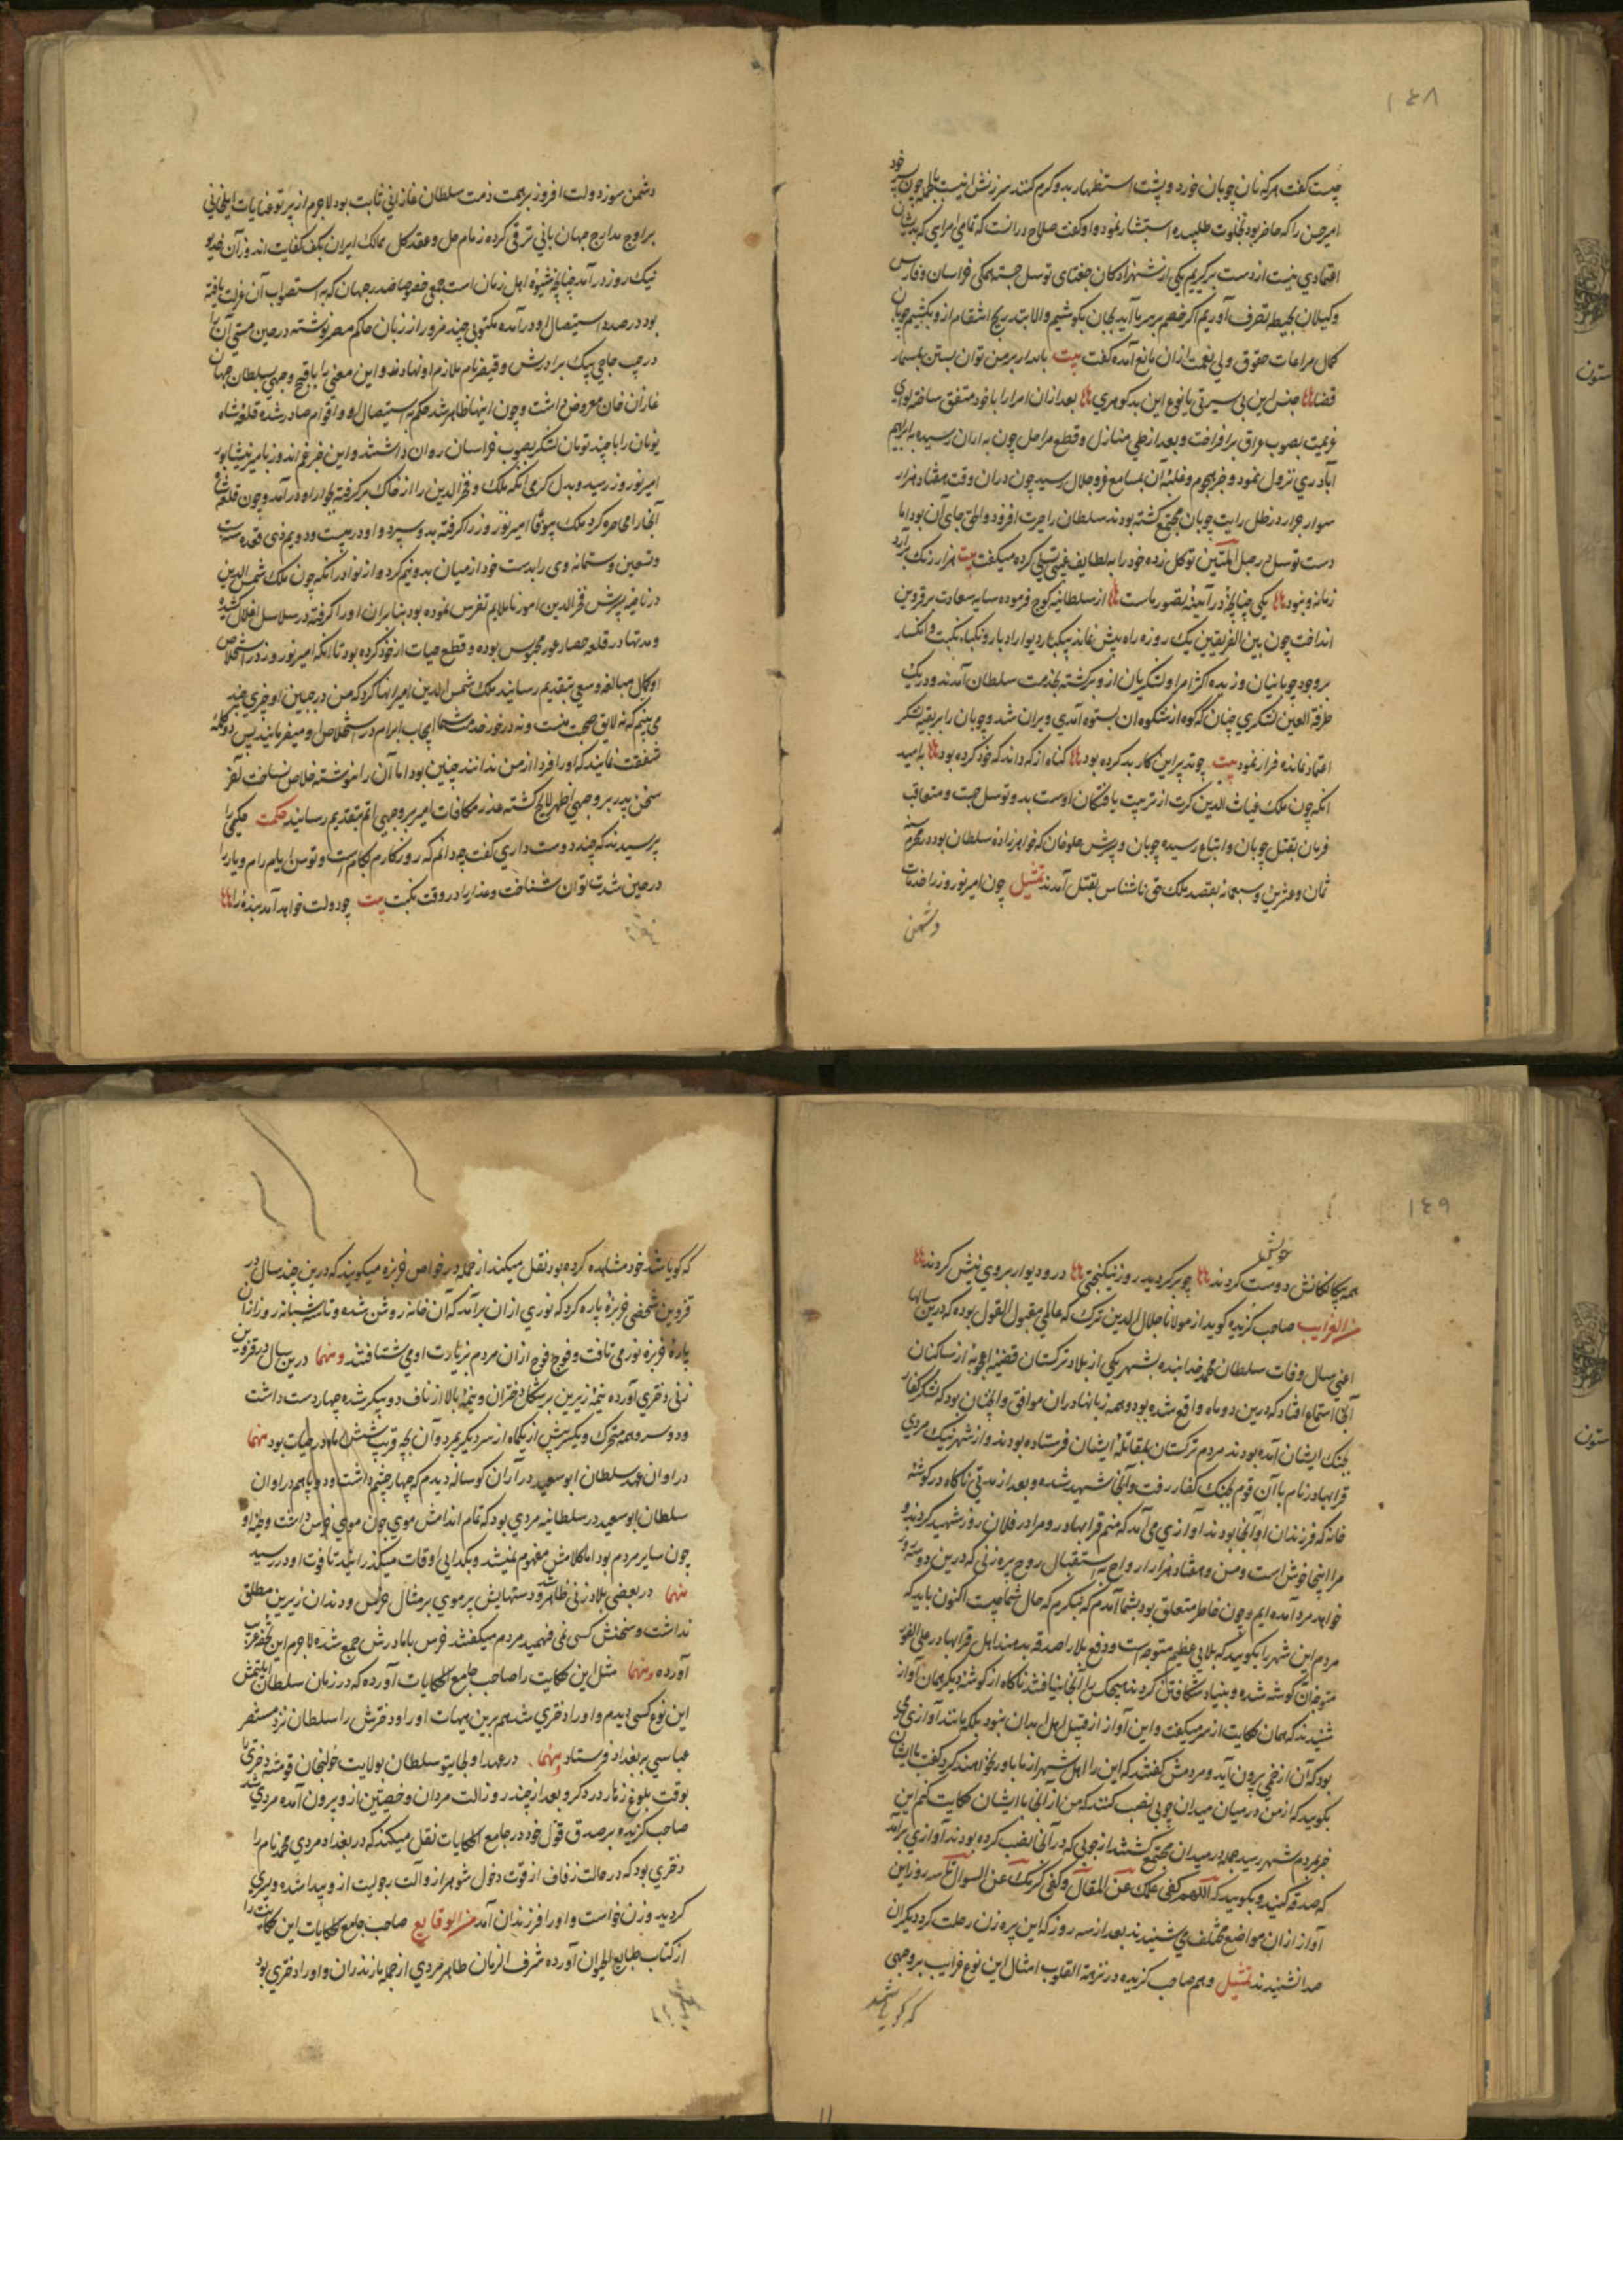 ١٤٨
چیست گفت هر که نان چوبان خورد و پشت استظهار بدو گرم کند سرزنش اینست بالجمله چون پسر خود
امیر حسن را که حاضر بود بخلوت طلبیده استشار نمود و او گفت صلاح در انست که تمامی امرایی که بدیشان
اعتمادی نیست از دست برگیریم یکی از شهزادکان جغتای توسل جسته همکی خراسان و فارس
و کیلان بحیطه تصرف آوریم اگر خصم بر سر ما آید بجان بکوشیم و الا بتدریج انتقام ازو بکشیم چوپان
کمال مراعات حقوق ولی نعمت ازان مانع آمده گفت بیت بامدار بر من توان بستن بمسمار
قضا جنس این بی سیرتی یا نوع این بد گوهری بعد ازان امرا را با خود متفق ساخته لوای
عزیمت بصوب عراق برافراخت و بعد از طی منازل و قطع مراحل چون به اران رسید به ابراهیم
آبادری نزول نمود و خبر هجوم و غلبه آن بمسامع عز و جلال رسید چون دران وقت هفتاد هزار
سوار جرار در ظل رایت چوبان مجتمع گشته بودند سلطان را حیرت افزود و الحق جای آن بود اما
دست توسل در حبل المتین توکل زده خود را به لطایف غیبی تسلی کرده میگفت بیت هزار رنگ برآرد
زمانه و نبود یکی چنانچه در آیینه تصور ماست از سلطانیه کوچ فرموده سایه سعادت بر قزوین
انداخت چون بین الفریقین یک روزه راه بیش نماند بیکبار دیوار ادبار و نکباء نکبت و انکسار
بر وجود چوپانیان وزیده اکثر امرا و لشکریان ازو برگشته بخدمت سلطان آمدند و در یک
طرفة العین لشکری چنان که کوه از شکوه ان بستوه آمدی ویران شد و چوبان را بر بقیه لشکر
اعتماد نمانده فرار نمود بیت چو تدبیر این کار بد کرده بود گناه از که داند که خود کرده بود به امید
انکه چون ملک غیاث الدین کرت از تربیت یافتگان اوست بدو توسل جست و متعاقب
فرمان بقتل چوپان و اتباع رسیده چوبان و پسرش جلوخان که خواهرزاده سلطان بود در محرم سنه
ثمان و عشرین و سبعمائه بقصد ملک حق ناشناس بقتل آمدند تمثیل چون امیر نوروز را خدمات
دشمن
دشمن سوز دولت افروز بر همت ذمت سلطان غازانی ثابت بود لاجرم از پرتو عنایات ایلخانی
بر اوج مدارج جهان بانی ترقی کرده زمام حل و عقد کل ممالک ایران بکف کفایت اندوز آن خدیو
نیک روز درآمد چنانچه شیوه اهل زمان است جمعی خصوصا صدر جهان که به استصواب آن عزلت یافته
بود در صدد استیصال او درآمده مکتوبی چند مزور از زبان حاکم مصر نوشته در حین مستی آن را
در جیب حاجی بیک برادرش و قیصر نام ملازم او نهادند و این معنی را باقبح وجهی بسلطان جهان
غازان خان معروض داشت و چون اینها ظاهر شد حکم به استیصال او و اقوام صادر شده قتلغ شاه
نویان را با چند تومان لشکر بصوب خراسان روان داشتند و این خبر غم اندوز بامیر نیشابور
امیر نوروز رسید و بدل گرمی انکه ملک فخر الدین را از خاک برگرفته بجوار او درآمد و چون قتلغ شاه
آنجا را محاصره کرد ملک بیوفا امیر نوروز را گرفته بدو سپرد و او در بیست و دویم ذی قعده سنه ست
و تسعین و ستمائه وی را بدست خود از میان بدو نیم کرد و از نوادر آنکه چون ملک شمس الدین
در ناصیه پسرش فخر الدین امور ناملایم تفرس نموده بود بنابران او را گرفته در سلاسل اغلال کشیده
و مدتها در قلعه حصار محبوس بوده و قطع حیات از خود کرده بود تا انکه امیر نوروز در استخلاص
او کمال مبالغه و سعی بتقدیم رسانید ملک شمس الدین امیر انها کرد که من در جبین او چیزی چند
می بینم که نه لایق صحبت منست و نه در خور خدمت شما ایجاب ابرام در استخلاص او میفرمایند پس دو کلمه
شفقت نمایند که او را فردا از من ندانند چنین بود اما آن را نوشته خلاص ساخت آخر
سخن پدر بر وجهی اظهر لایح گشته عذر مکافات امیر بر وجهی اتم بتقدیم رسانید حکمت حکیمی را
پرسیدند که چند دوست داری گفت چه دانم که روزکارم بکام است و توسن ایام رام و یار را
در حین شدت توان شناخت و عذار را در وقت نکبت بیت چو دولت خواهد آمد بنده را
١٤٩
همه بیکانکانش خویش دوست کردند چو برگردید روز نیکبختی در و دیوار بروی نیش کردند
من الغرایب صاحب گزیده گوید از مولانا جلال الدین ترک که عالمی مقبول القول بوده که درین سالها
اعنی سال وفات سلطان محمد خدابنده بشهر یکی از بلاد ترکستان قضیه اعجوبه از ساکنان
آنجا استماع افتاد که درین دو ماه واقع شده بود و همه زبانها دران موافق و آنچنان بود که لشکر کفار
بجنگ ایشان آمده بودند مردم ترکستان بمقاتله ایشان فرستاده بودند و از شهر نیک مردی
قرابهادر نام با آن قوم بجنگ کفار رفت و آنجا شهید شده و بعد از مدتی ناکاه در گوشه
خانه که فرزندان او آنجا بودند آوازی می آمد که منم قرابهادر و مرا در فلان روز شهید کردند و
مرا اینجا خوش است و من و هفتاد هزار ارواح به استقبال روح پیرزنی که درین دو سه روز
خواهد مرد آمده ایم و چون خاطر متعلق بود بشما آمدم که بنگرم که حال شما چیست اکنون باید که
مردم این شهر را بگویید که بلایی عظیم متوجه است و دفع بلا را صدقه بدهند اهل قرابهادر علی الفور
متوجه آن گوشه شده و بنیاد شکافتن کردند هیچکس را آنجا نیافتند ناکاه از گوشه دیگر همان آواز
شنیدند که همان حکایت از سر میگفت و این آواز از قبیل اهل ابدان نبود بلکه مانند آوازی می
بود که آن از خمی برون آید و مردمش گفتند که این را اهل شهر از ما باور نخواهند کرد گفت با ایشان
بگویید که از من در میان میدان چوبی نصب کنند که من از آنجا با ایشان حکایت کنم این
خبر بمردم شهر رسید جمله در میدان مجتمع گشتند از چوبی که در آنجا نصب کرده بودند آوازی برآمد
که صدقه کنید و بگویید که اللهم کفی علمک عن المقال و کفی کرمک عن السوال تا سه روز این
آواز ازان مواضع مختلف می شنیدند بعد از سه روز که این پیرزن رحلت کرد دیگران
صدا نشنیدند تمثیل و هم صاحب گزیده در نزهة القلوب امثال این نوع غرایب بر وجهی
که گویا شد
که گویا شد خود مشاهده کرده بود نقل میکند از جمله در خواص خربزه میگویند که درین چند سال در
قزوین شخصی خربزه پاره کرد که نوری ازان برآمد که آن خانه روشن شده و تا سه شبانه روز ازان
پاره خربزه نور می تافت و فوج فوج ازان مردم بزیارت او می شتافتند و منها درین سال در قزوین
زنی دختری آورده نیمه زیرین بر شکل دختران و نیمه بالا از ناف دو پیکر شده چهار دست داشت
و دو سر و همه متحرک و یک سرش از یکماه از سر دیگر بمرد و آن بچه قرب شش ماه در حیات بود منها
در اوان عهد سلطان ابو سعید در آران گوساله دیدم که چهار چشم داشت و دو پا هم در اوان
سلطان ابو سعید در سلطانیه مردی بود که تمام اندامش موی چون موی خرس داشت و طیره او
چون سایر مردم بود اما کلامش مفهوم نمیشد و بگدایی اوقات میگذرانید تا فوت او در رسید
منها در بعضی بلاد زنی ظاهر شد و دستهایش پر موی بر مثال خرس و دندان زیرین مطلق
نداشت و سخنش کسی نمی فهمید مردم میگفتند خرس با مادرش جمع شده لاجرم این تحفه غریب
آورده و منها مثل این حکایت را صاحب جامع الحکایات آورده که در زمان سلطان ایلتتمش
این نوع کسی دیدم و او را دختری شد هم برین هیات او را و دخترش را سلطان نزد مستنصر
عباسی ببغداد فرستاد منها در عهد اولجایتو سلطان بولایت خولنجان قومشه دختری را
بوقت بلوغ زهار درد کرد و بعد از چند روز الت مردان و خصیتین ازو برون آمده مردی شد
صاحب گزیده بر صدق قول خود در جامع الحکایات نقل میکند که در بغداد مردی محمد نام را
دختری بود که در حالت زفاف از قوت دخول شوهر ازو آلت رجولیت ازو پیدا شده و پسری
گردید و زن خواست و او را فرزندان آمد من الوقایع صاحب جامع الحکایات این حکایت را
از کتاب طبایع الحیوان آورده شرف الزمان طاهر مردی از جمله مازندران و او را دختری بود